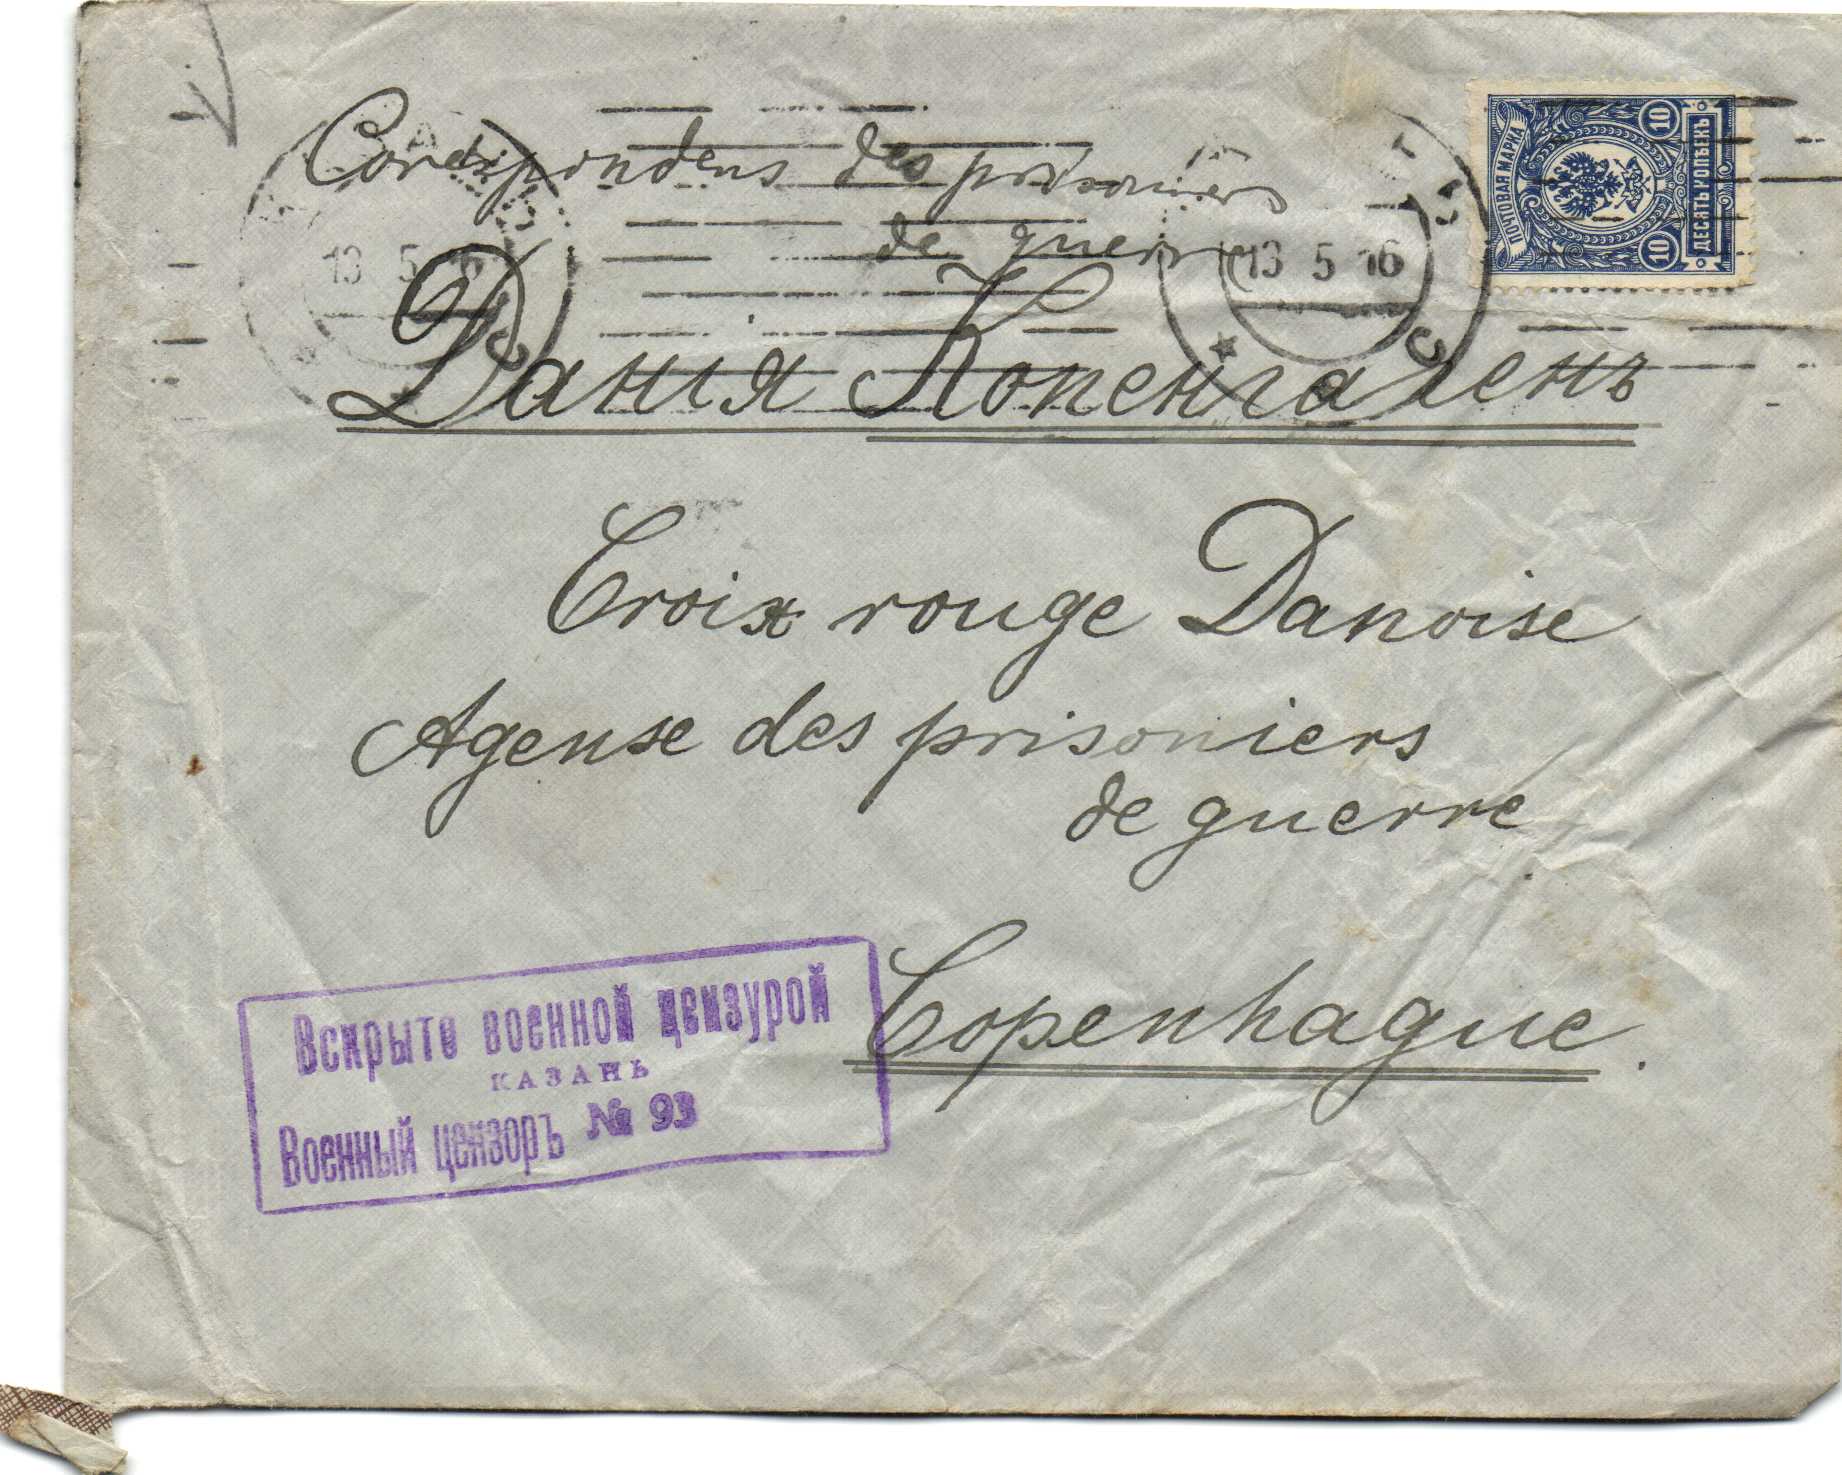 Correspondens des prisoniers
de guerre
13 5 16
13 5 16
ПОЧТОВАЯ МАРКА
10
10
ДЕСЯТЬ КОПѢЕКЪ
Данія Копенгагенъ
Croix rouge Danoise
Agense des prisoniers
de guerre
Copenhague.
Вскрыто военной цензурой
КАЗАНЬ
Военный цензоръ № 93